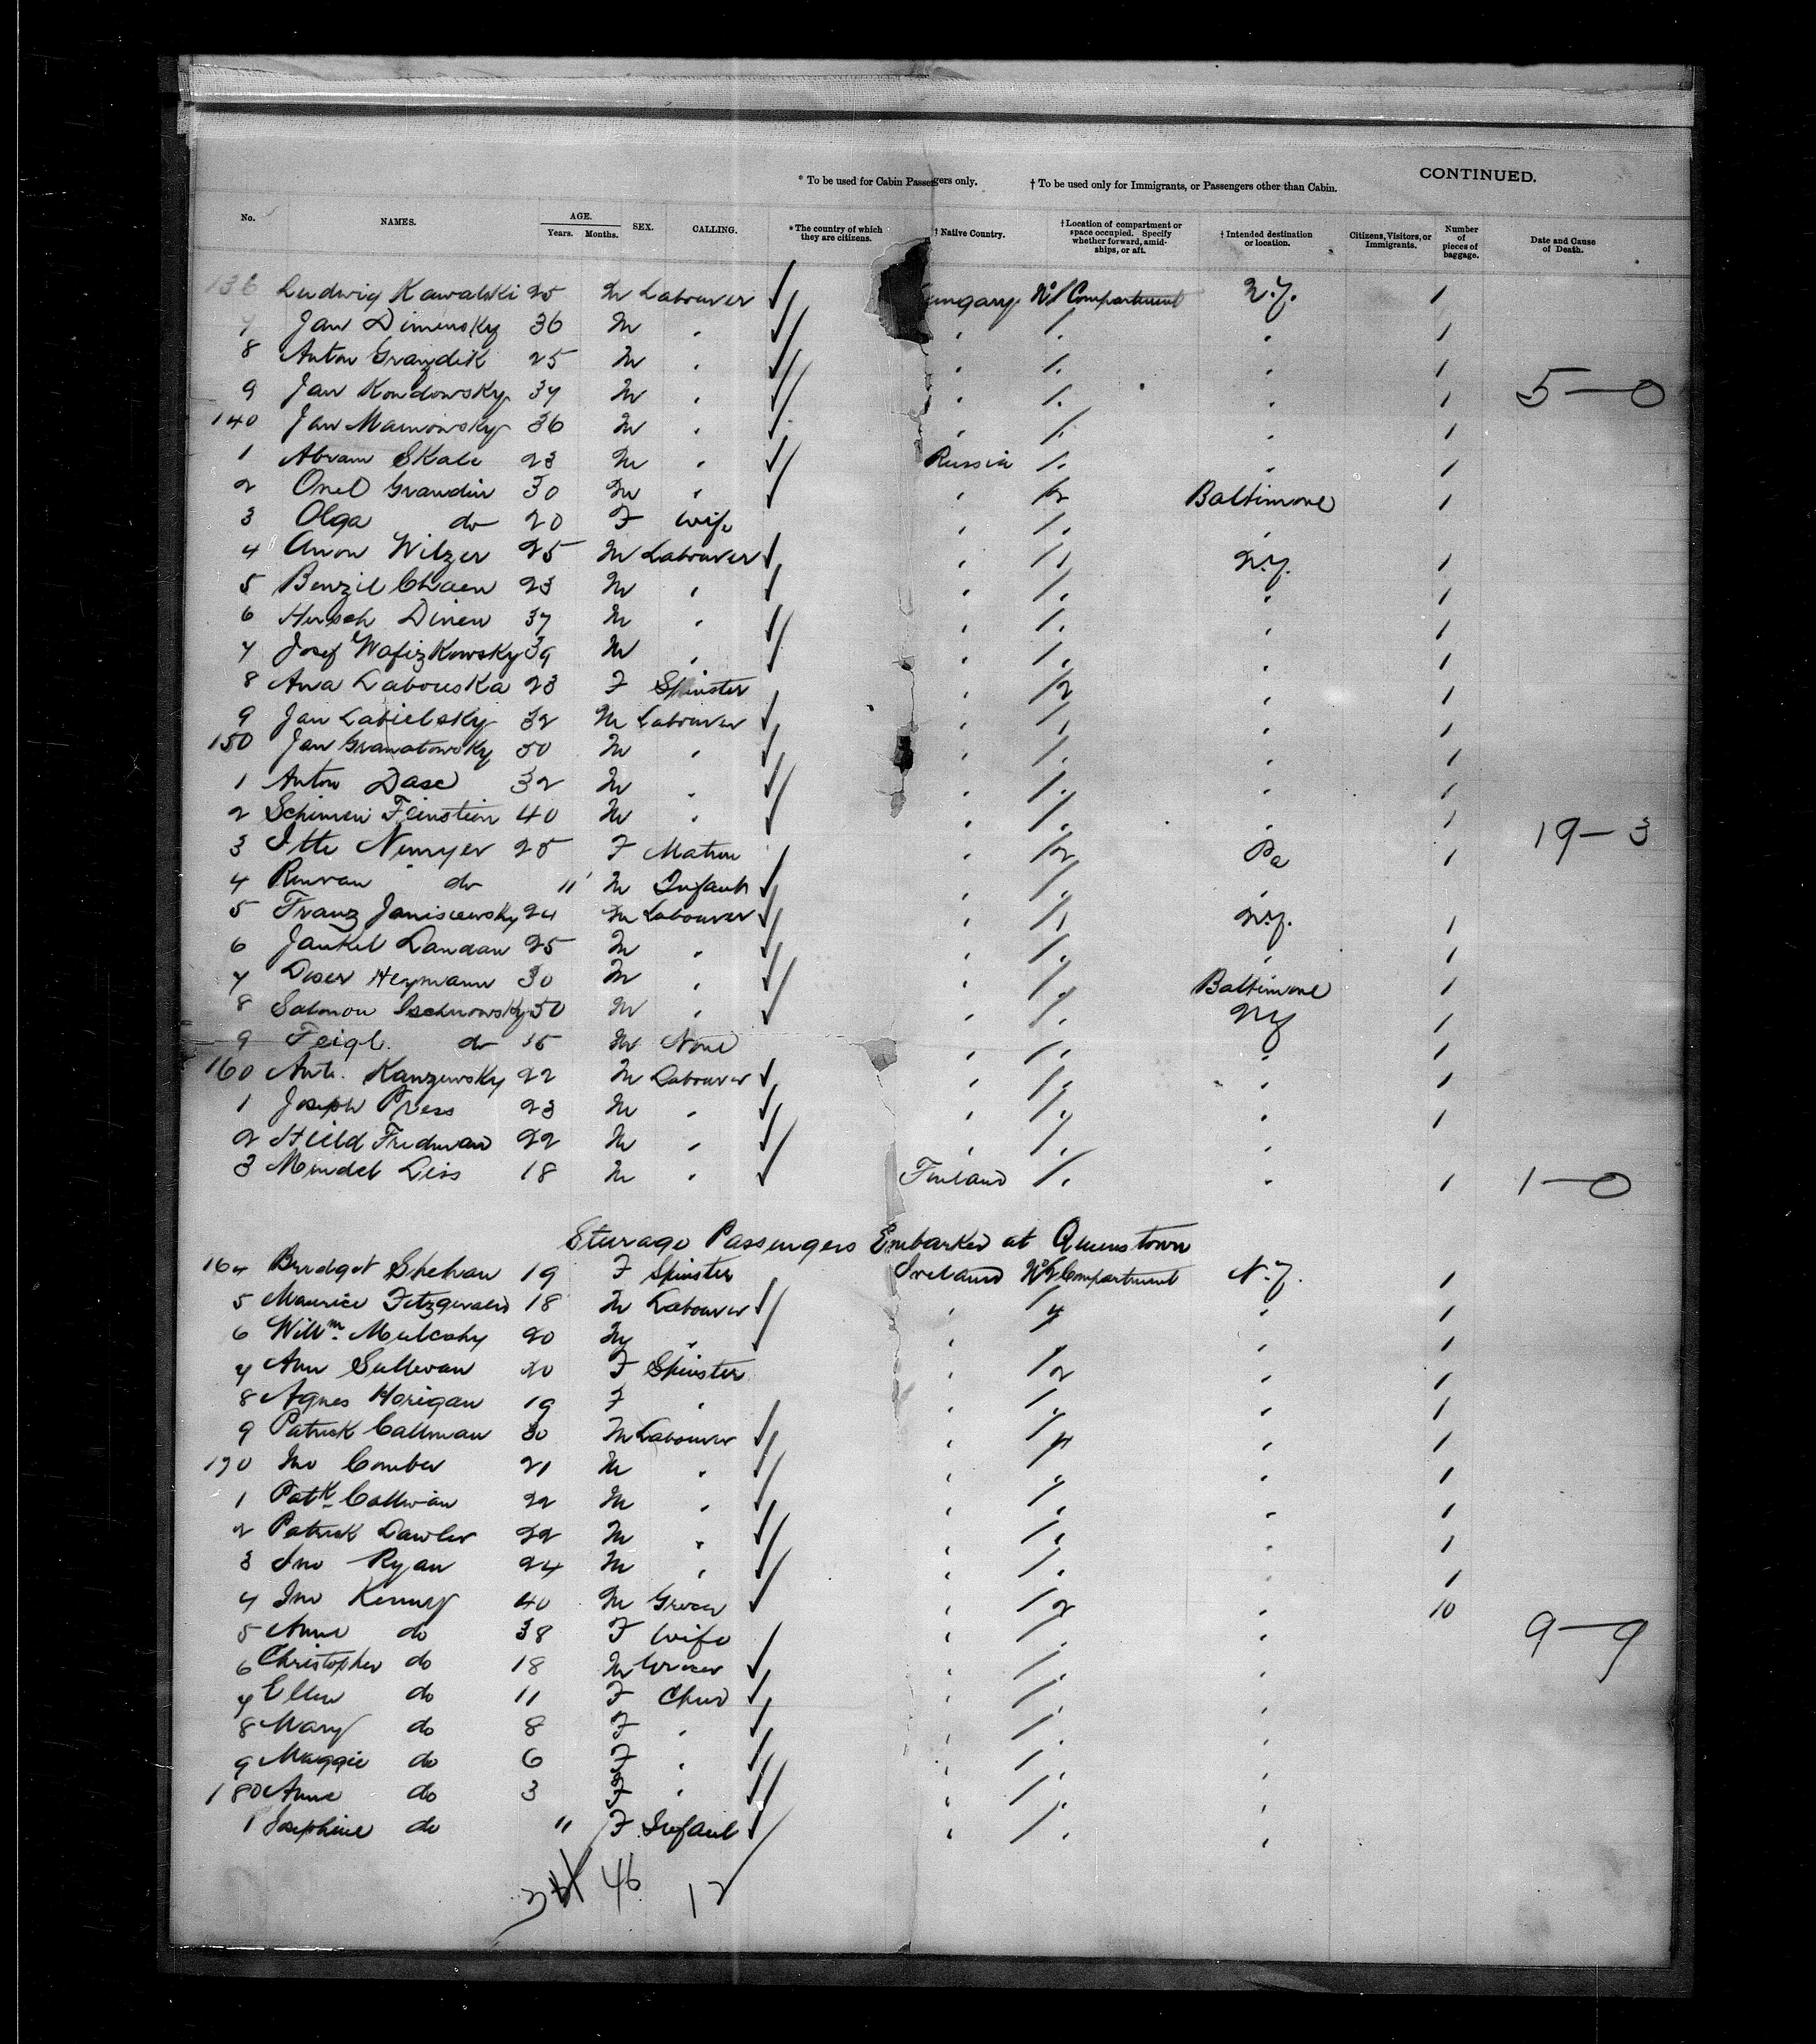 CONTINUED.
* To be used for Cabin Passengers only. † To be used only for Immigrants, or Passengers other than Cabin.
No. NAMES. AGE. Years. Months. SEX. CALLING. * The country of which they are citizens. † Native Country. † Location of compartment or space occupied. Specify whether forward, amidships, or aft. † Intended destination or location. Citizens, Visitors, or Immigrants. Number of pieces of baggage. Date and Cause of Death.
136 Ludwig Kawalski 25 M Labourer ungary No 1 Compartment N.Y. 1
7 Jan Dimensky 36 M " " 1 " " 1
8 Anton Grazdik 25 M " " 1 " " 1
9 Jan Kondowsky 37 M " " 1 " " 1 5—0
140 Jan Mamowsky 36 M " " 1 " " 1
1 Abram Skale 23 M " Russia 1 " " 1
2 Onel Grandin 30 M " " 2 Baltimore 1
3 Olga do 20 F Wife " " "
4 Wilzer 25 M Labourer " 1 N.Y. 1
5 Benzil Chaen 23 M " " " " 1
6 Hersch Dinen 37 M " " " " 1
7 Josef 39 M " " " " 1
8 Ana Labouska 23 F Spinster " 2 " 1
9 Jan Labielsky 32 M Labourer " 1 " 1
150 Jan Granatowsky 50 M " " " " 1
1 Anton Dase 32 M " " " " 1
2 Feinstein 40 M " " " " 1 19—3
3 Itte Nemyer 25 F Matron " 2 Pa 1
4 do 11 M Infant " " "
5 Franz Janiscewsky 24 M Labourer " 1 N.Y. 1
6 Jankel Landau 25 M " " " " 1
7 Doser Heymann 30 M " " " Baltimore 1
8 Salmon 50 M " " " NY 1
9 Feigl. do 15 M None " " " 1
160 Ant. Kanzewsky 22 M Labourer " " " 1
1 Joseph Press 23 M " " " " 1
2 Fredman 22 M " " " "
3 Mendel Liss 18 M " Finland " " 1 1—0
Sturage Passengers Embarked at Queenstown
164 Bridget Shehan 19 F Spinster Ireland No 2 Compartment N.Y. 1
5 Maurice Fitzgerald 18 M Labourer " 4 " 1
6 Willm. Mulcahy 20 M " " " 1
7 Ann Sullivan 20 F Spinster " 2 " 1
8 Agnes Horigan 19 F " " " " 1
9 Patrick Callinan 30 M Labourer " 4 " 1
170 Jno Comber 21 M " " " " 1
1 Patk Callinan 22 M " " " " 1
2 Patrick Lawler 22 M " " " " 1
3 Jno Ryan 24 M " " " " 1
4 Jno Kenny 40 M Grocer " 2 " 10
5 Anne do 38 F Wife " " " 9—9
6 Christopher do 18 M Grocer " " "
7 Ellen do 11 F Child " " "
8 Mary do 8 F " " " "
9 Maggie do 6 F " " " "
180 Anne do 3 F " " " "
1 Josephine do 11 F Infant " " "
46 12